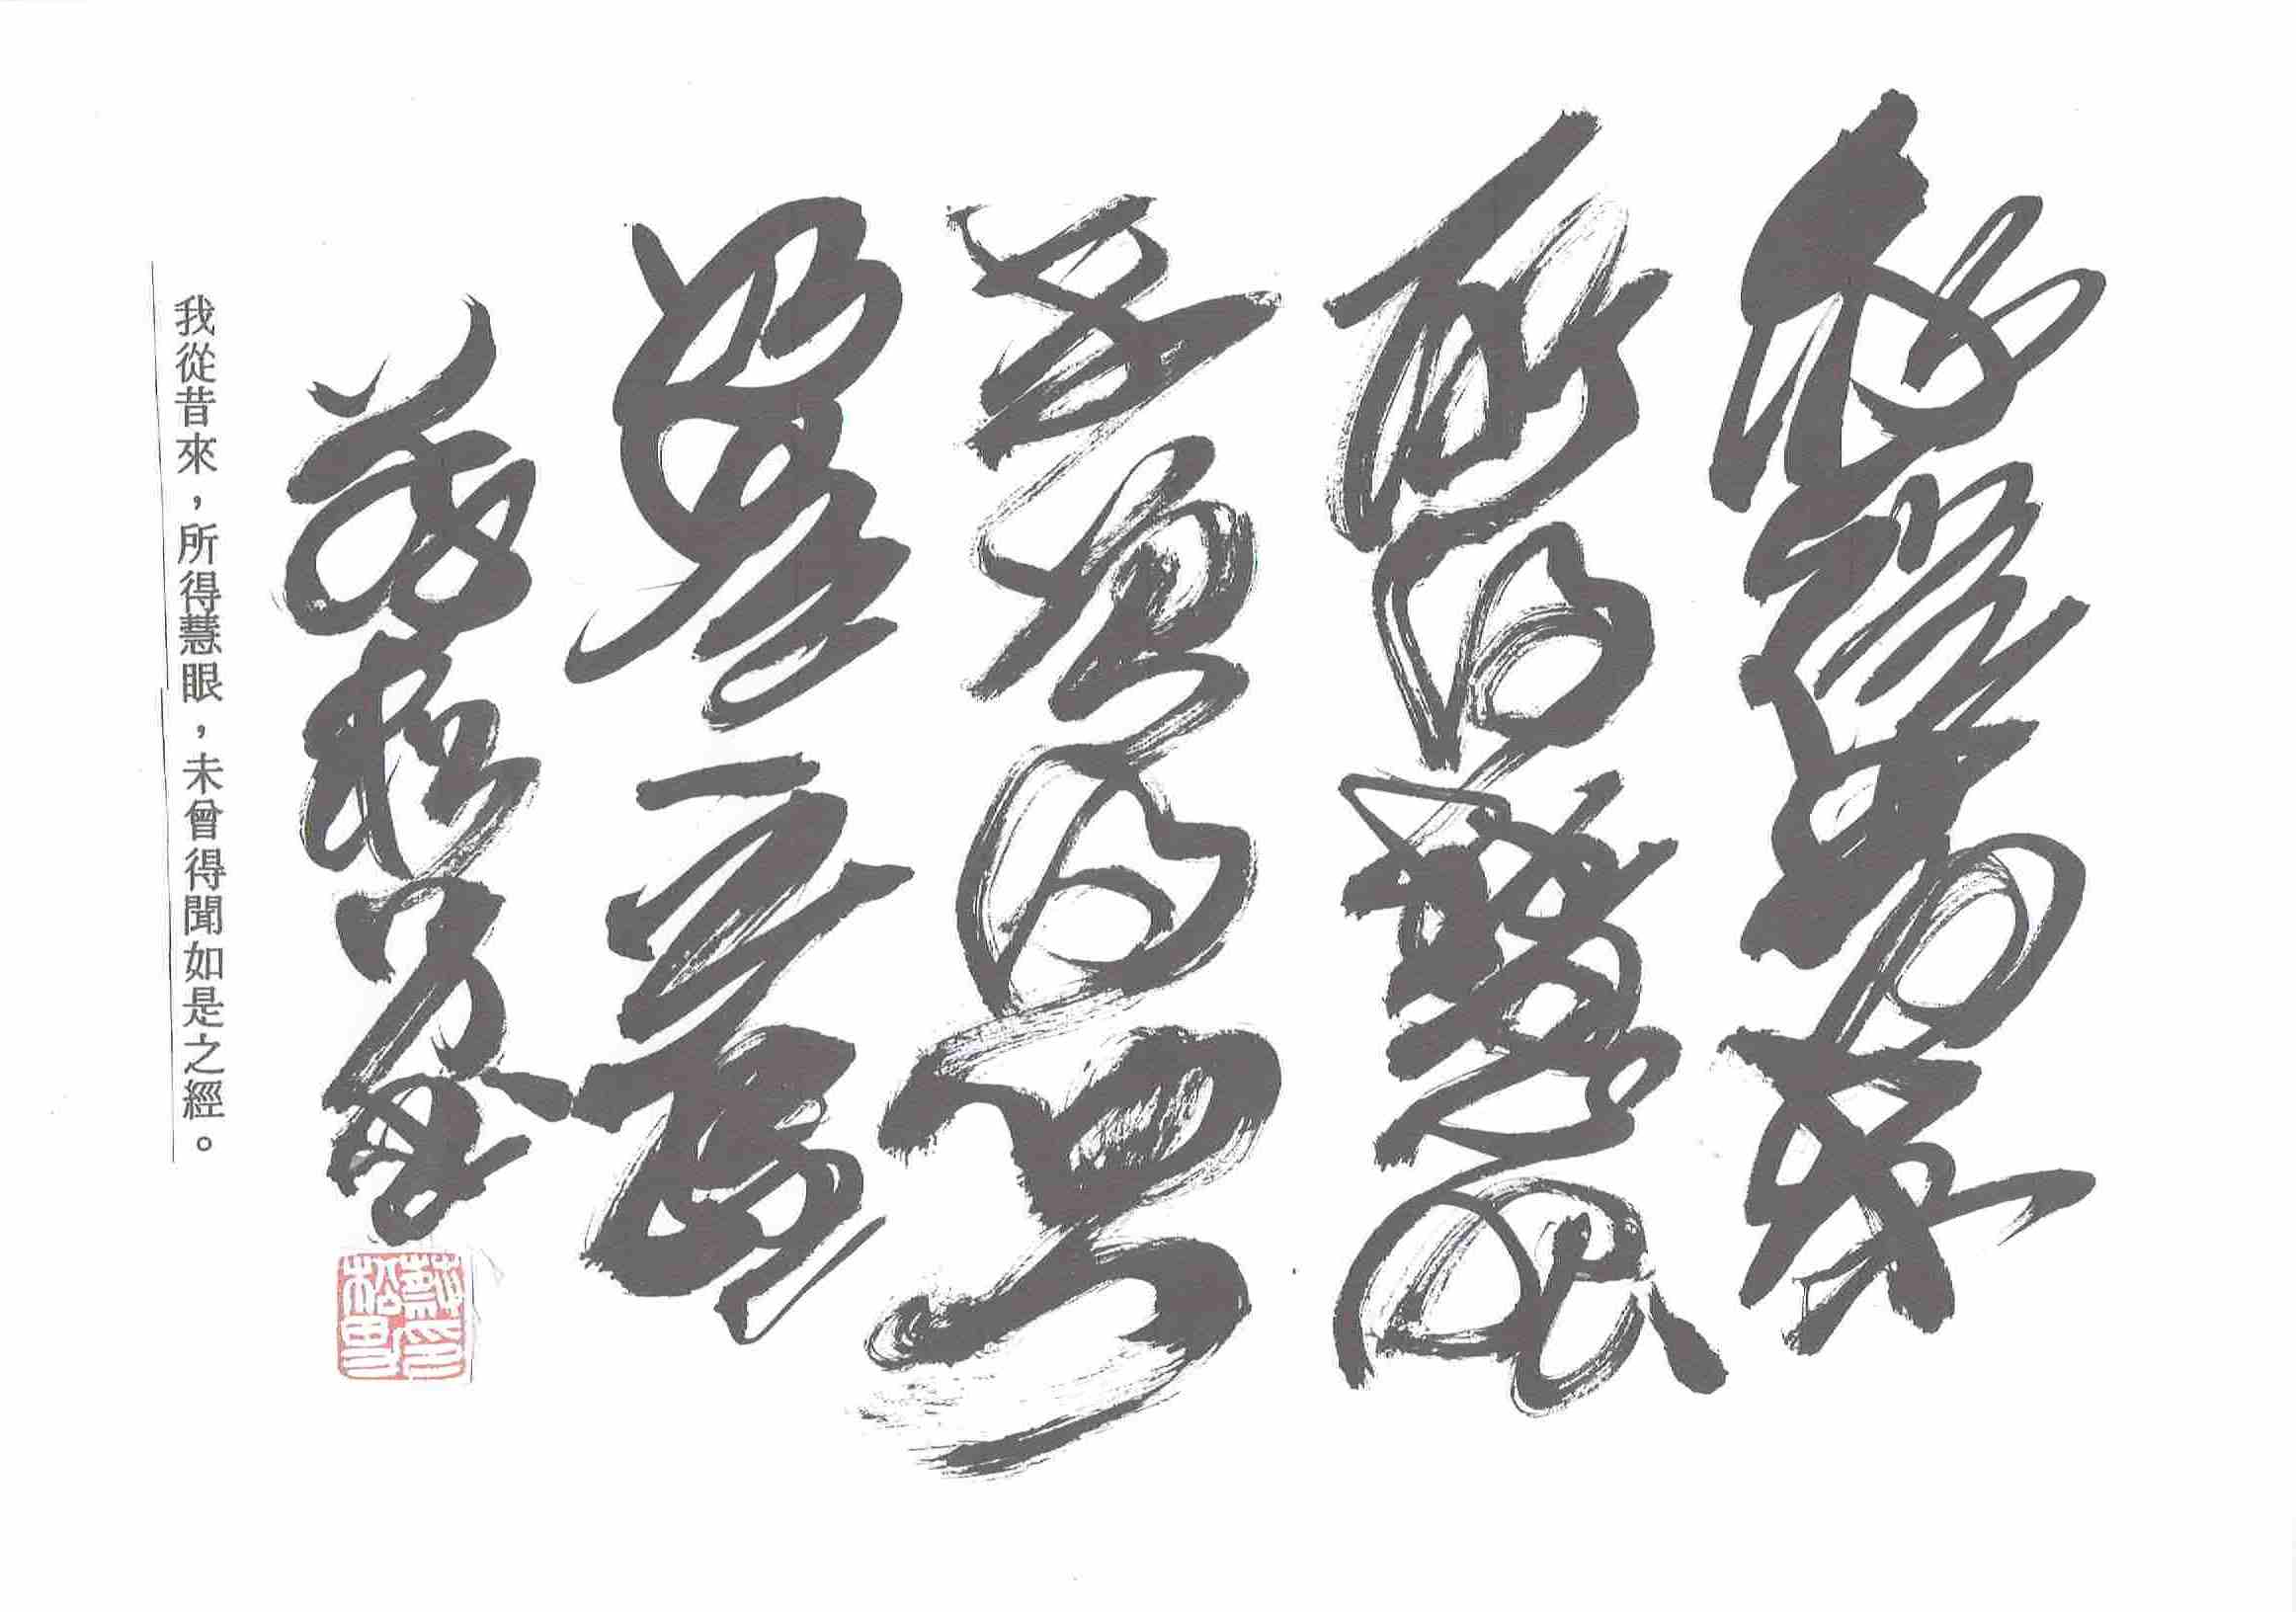 我從昔來
所得慧眼
未曾得聞
如是之經
蔡松男書
我從昔來，所得慧眼，未曾得聞如是之經。